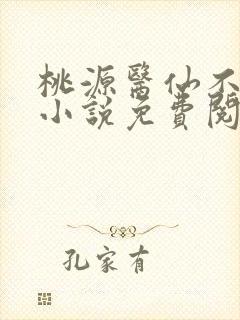 桃源醫仙不
小說免費閱
孔家有